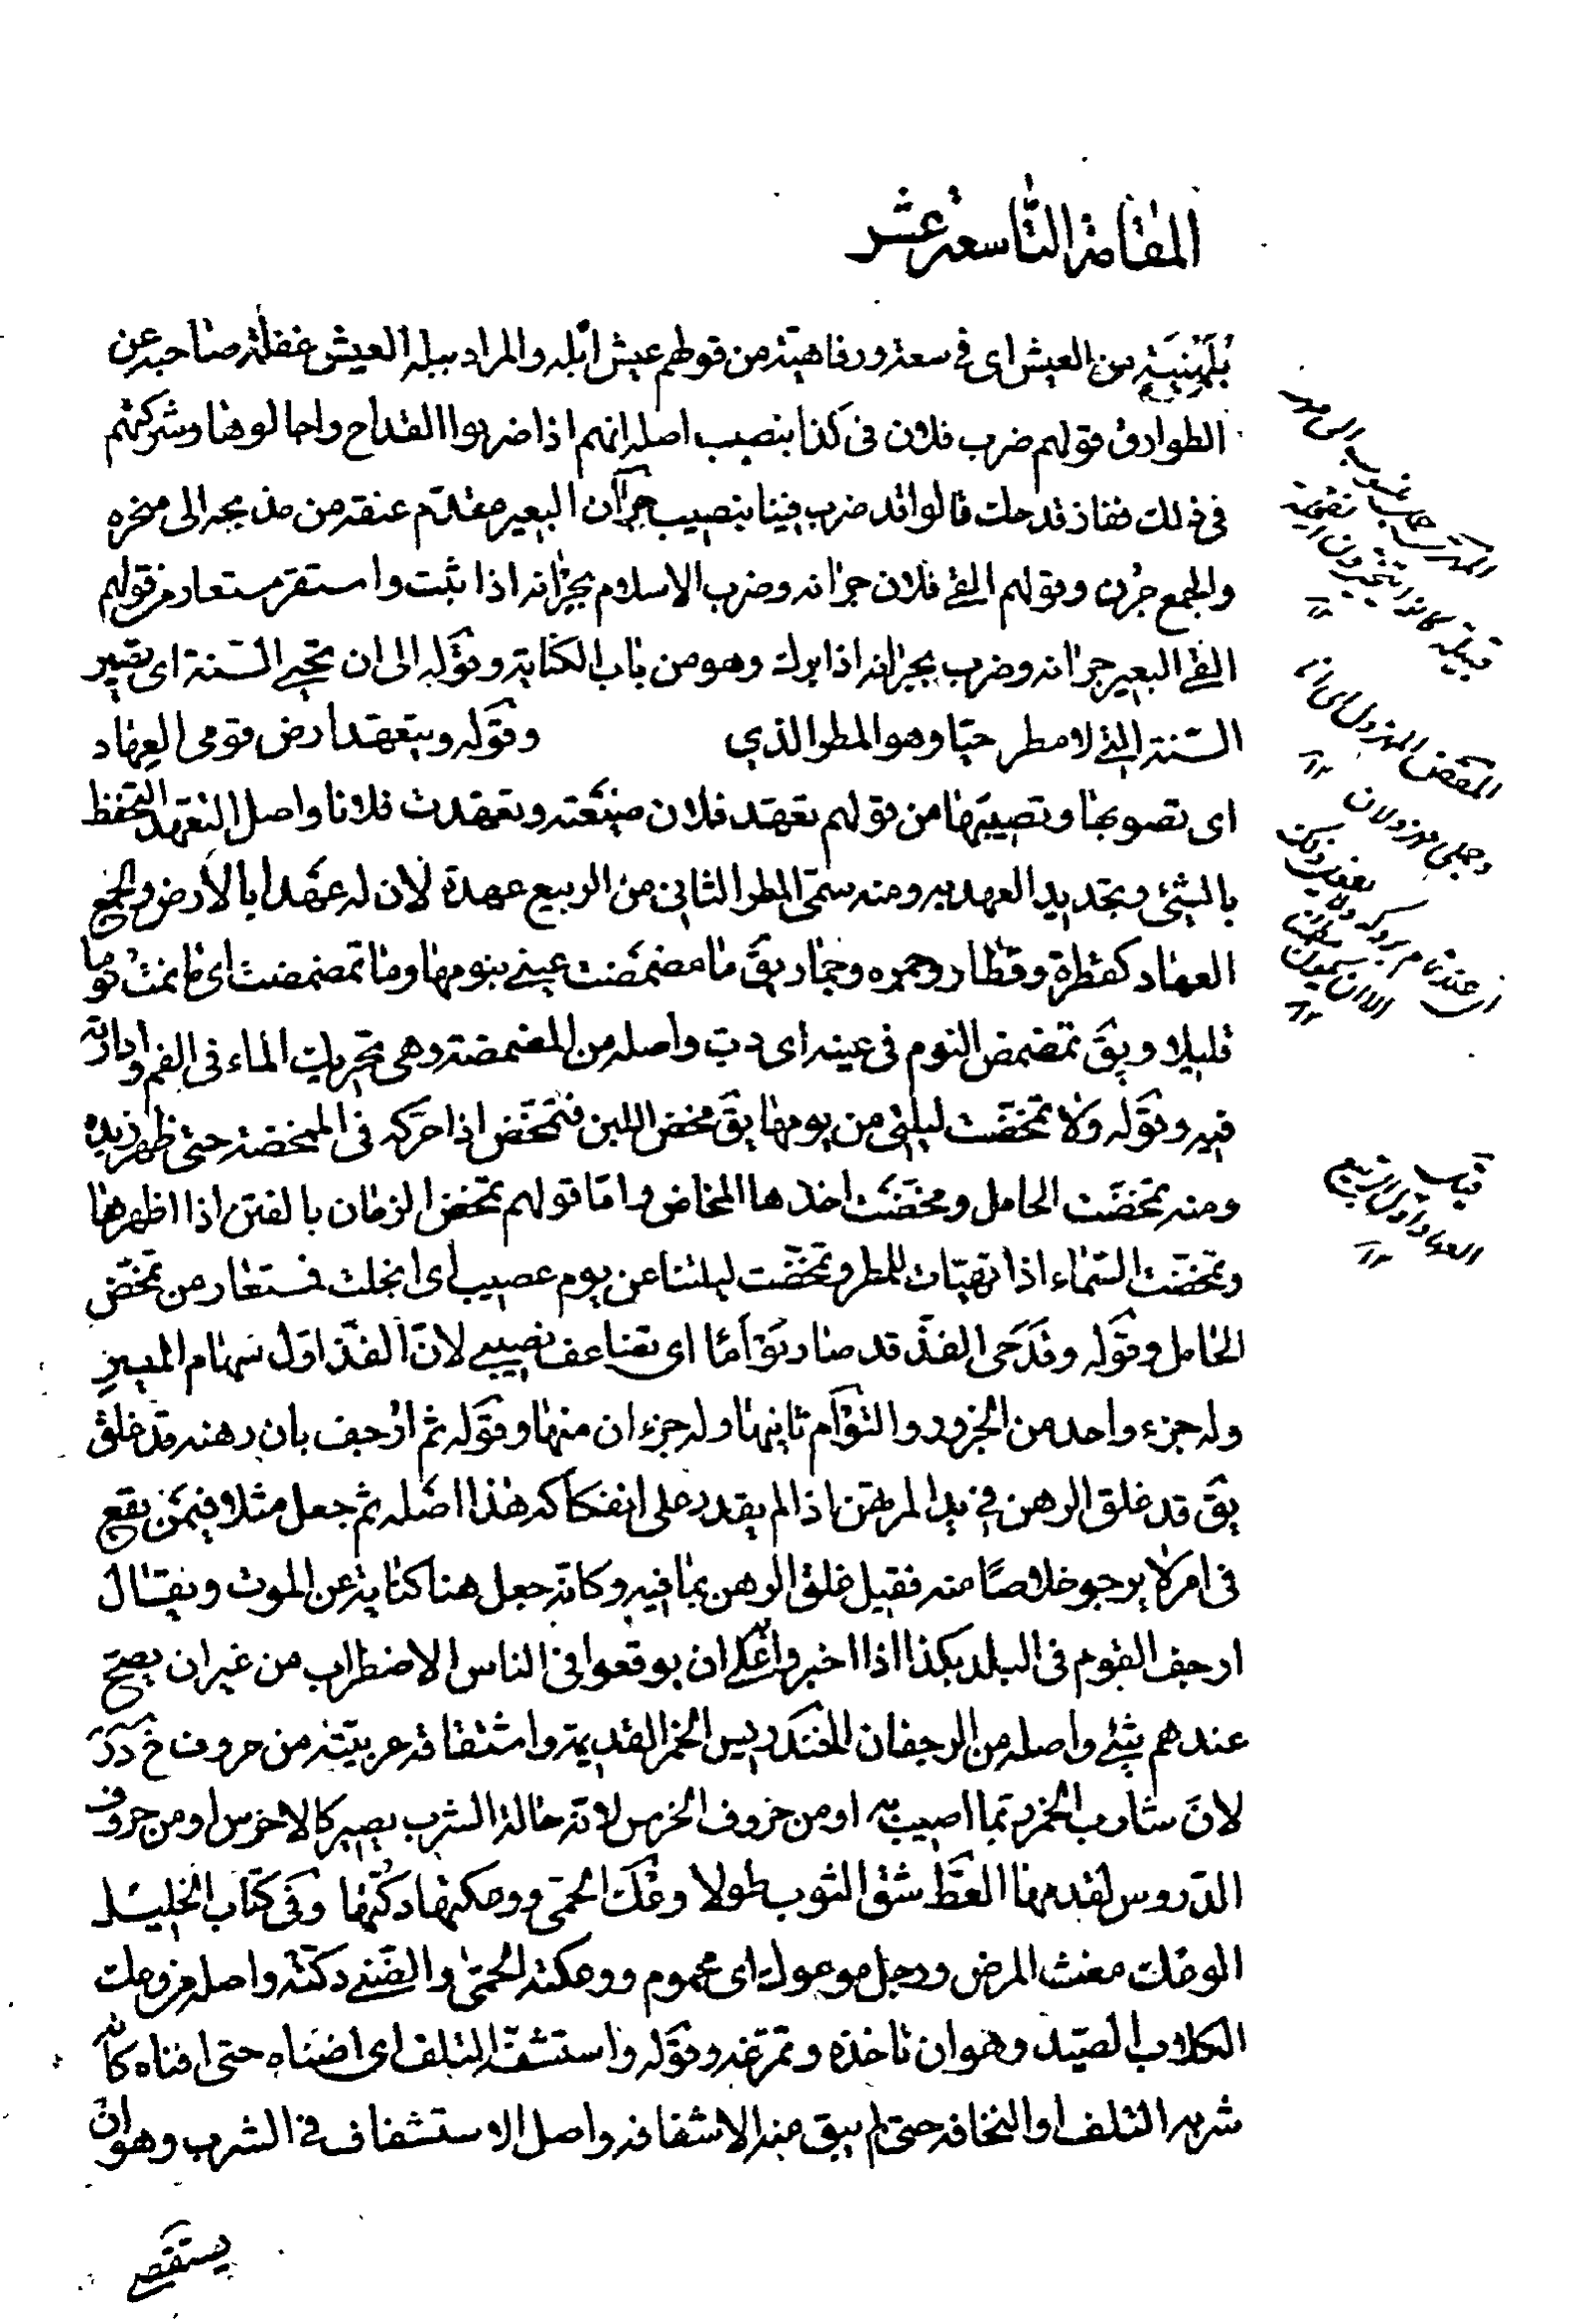 المقامة التاسعة عشر
بُلَهْنِيَةٍ من العيش اى فى سعة ورفاهية من قولهم عيش ابله والمراد ببله العيش غفلة صاحبه عن
الطوارق قولهم ضرب فلان فى كذا بنصيب اصله انهم اذا ضربوا القداح واجالوها وشركهم
فى ذلك ففاز قدحك قالوا قد ضرب فينا بنصيب جران البعير مقدّم عنقه من مذبحه الى منخره
والجمع جرن وقولهم القى فلان جرانه وضرب الاسلام بجرانه اذا ثبت واستقر مستعار من قولهم
القى البعير جرانه وضرب بجرانه اذا برك وهو من باب الكناية وقوله الى ان تحيى السّنة اى تصير
السّنة التى لا مطر حيّا وهو المطر الذي وقوله ويتعهد ارض قومى العِهاد
اى تصوبها وتصيبها من قولهم تعهّد فلان ضيعته وتعهدت فلانا واصل التعهد التحفظ
بالشئ وتجديد العهد به ومنه سمّى المطر الثانى من الربيع عهدة لان له عهدا بالارض والجمع
العهاد كقطرة وقطار وجمره وجمار يق ما مضمضت عينى بنومها وما تمضمضت اى ما نمت نوما
قليلا ويق تمضمض النوم فى عينه اى دبّ واصله من المضمضة وهى تحريك الماء فى الفم وادارته
فيه وقوله ولا تمخّضت ليلتى من يومها يق مخض اللبن فتمخّض اذا حركه فى الممخضة حتى ظهر زبده
ومنه تمخّضت الحامل ومخضت اخذها المخاض واما قولهم تمخض الزمان بالفتن اذا اظهرها
وتمخضت السّماء اذا تهيّات للمطر وتمخّضت ليلتنا عن يوم عصيب اى انجلت فمستعار من تمخّض
الحامل وقوله وقدحى الفذّ قد صار تؤامًا اى تضاعف نصيبى لانّ الفذّ اول سهام الميسر
وله جزء واحد من الجزور والتؤام ثانيها وله جزءان منها وقوله ثم ارجف بان رهنه قد غلق
يق قد غلق الرهن فى يد المرتهن اذا لم يقدر على انفكاكه هذا اصله ثم جعل مثلا فيمن يقع
فى امر لا يرجو خلاصًا منه فقيل غلق الرهن بما فيه وكانّه جعل هنا كناية عن الموت ويقال
ارجف القوم فى البلد بكذا اذا اخبروا به على ان يوقعوا فى الناس الاضطراب من غير ان يصحّ
عندهم شئ واصله من الرجفان الخندريس الخمر القديمة واشتقاقه عربيّته من حروف خ د ر
لانّ شارب الخمر ربّما اصيب به او من حروف الخرس لانّه حالة الشرب يصير كالاخرس او من حروف
الدّروس لقدمها العَطّ شق الثوب طولا وعْك الحمّى ووعكتها دكّها وفى كتاب الخليل
الوعك مغث المرض ورجل موعوك اى محموم ووعكته الحمّى والضنى دكّته واصله من وعك
الكلاب الصّيد وهو ان تاخذه وتمرّغه وقوله واستشفّه التلف اى اضناه حتى افناه كانّه
شربه التلف او النحافة حتى لم يبق منه الا شفافه واصل الاستشفاف فى الشرب وهو ان
يستقصى
قبيلة كانوا
المقض المهزول
العهاد اوّل الربيع